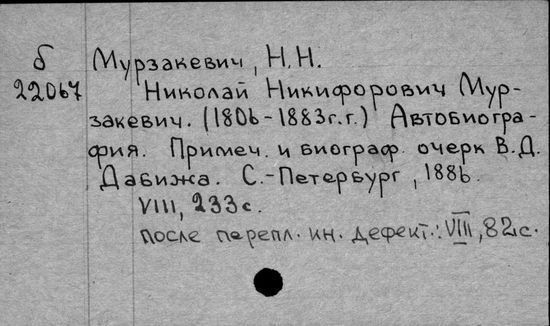 б Мурзакевич, Н.Н.
22067 Николай Никифорович Мур-
закевич. (1806-1883г.г.) Автобиогра-
фия. Примеч. и биограф. очерк В.Д.
Дабижа. С.-Петербург, 1886.
VIII, 233с.
после перепл. ин. дефект.: VIII, 82с.